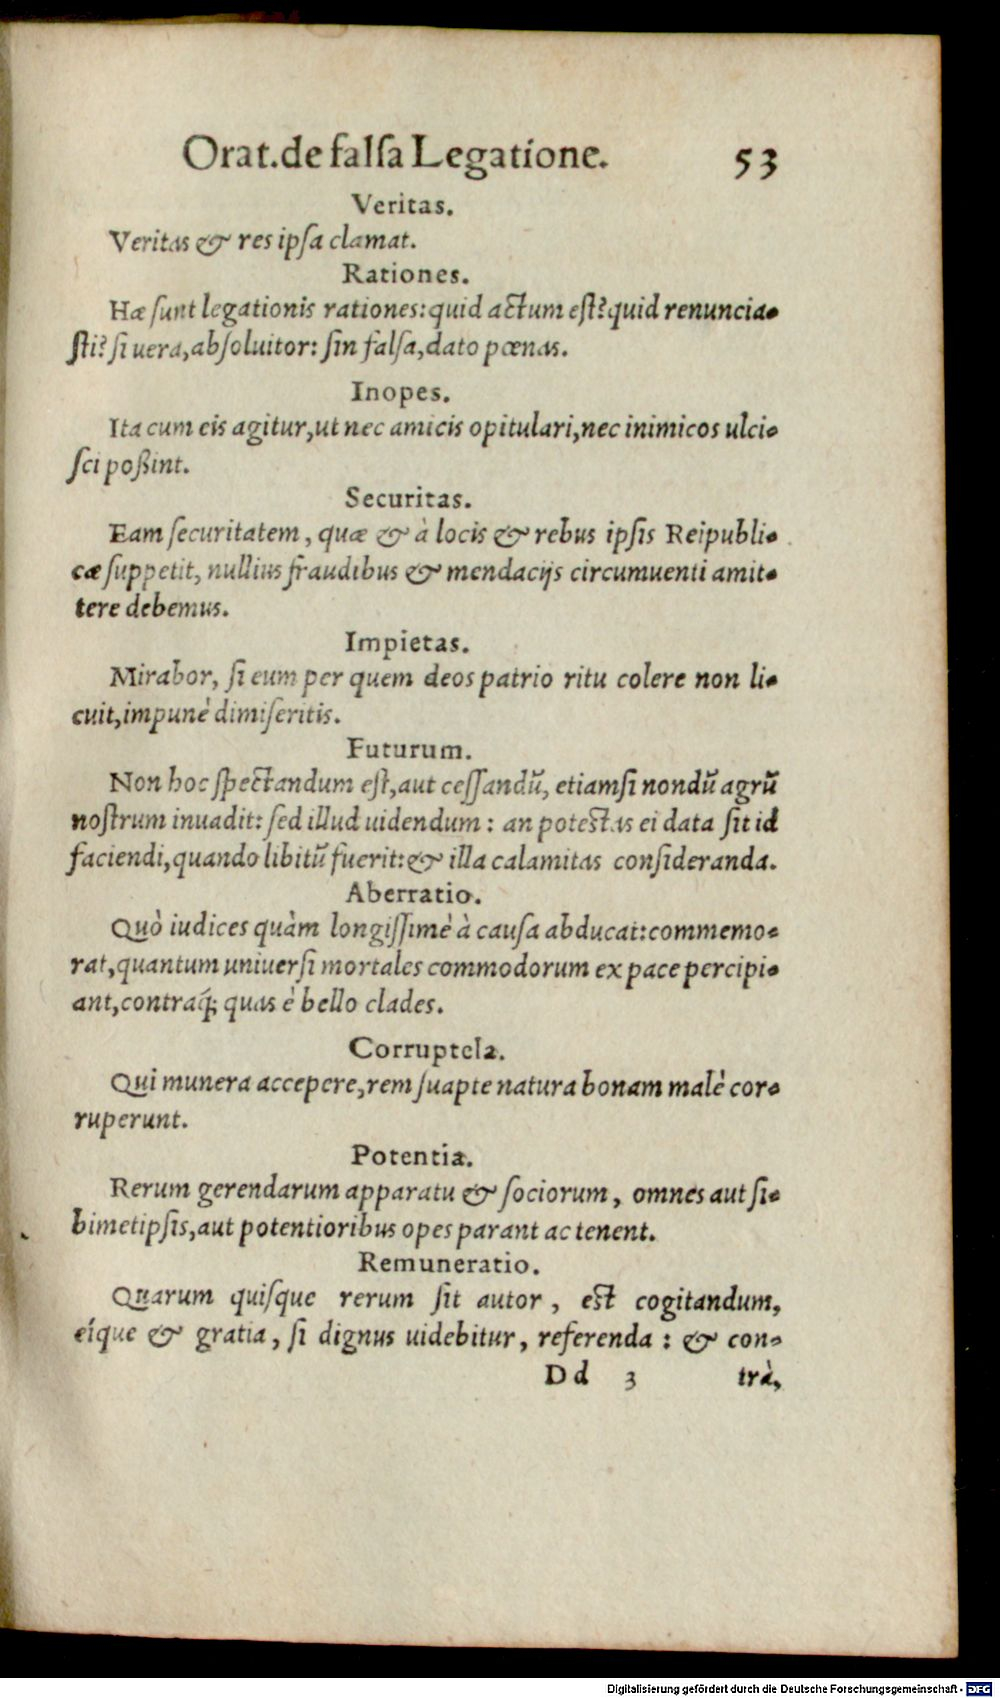 Orat.de falſa Legatione. 53
Veritas.
Veritas & res ipſa clamat.
Rationes.
Hæ ſunt legationis rationes: quid actum eſt? quid renuncia-
ſti? ſi uera, abſoluitor: ſin falſa, dato pœnas.
Inopes.
Ita cum eis agitur, ut nec amicis opitulari, nec inimicos ulci-
ſci poßint.
Securitas.
Eam ſecuritatem, quæ & à locis & rebus ipſis Reipubli-
cæ ſuppetit, nullius fraudibus & mendacijs circumuenti amit-
tere debemus.
Impietas.
Mirabor, ſi eum per quem deos patrio ritu colere non li-
cuit, impunè dimiſeritis.
Futurum.
Non hoc ſpectandum eſt, aut ceſſandū, etiamſi nondū agrū
noſtrum inuadit: ſed illud uidendum: an poteſtas ei data ſit id
faciendi, quando libitū fuerit: & illa calamitas conſideranda.
Aberratio.
Quò iudices quàm longiſſimè à cauſa abducat: commemo-
rat, quantum uniuerſi mortales commodorum ex pace percipi-
ant, contraq́; quas è bello clades.
Corruptela.
Qui munera accepere, rem ſuapte natura bonam malè cor-
ruperunt.
Potentia.
Rerum gerendarum apparatu & ſociorum, omnes aut ſi-
bimetipſis, aut potentioribus opes parant ac tenent.
Remuneratio.
Quarum quiſque rerum ſit autor, eſt cogitandum,
eíque & gratia, ſi dignus uidebitur, referenda: & con-
Dd 3 trà,
Digitalisierung gefördert durch die Deutsche Forschungsgemeinschaft - DFG